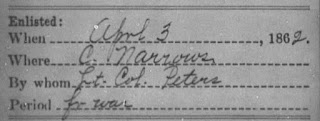 Enlisted:
When April 3, 1862.
Where C. Narrows
By whom Lt. Col. Peters
Period for war